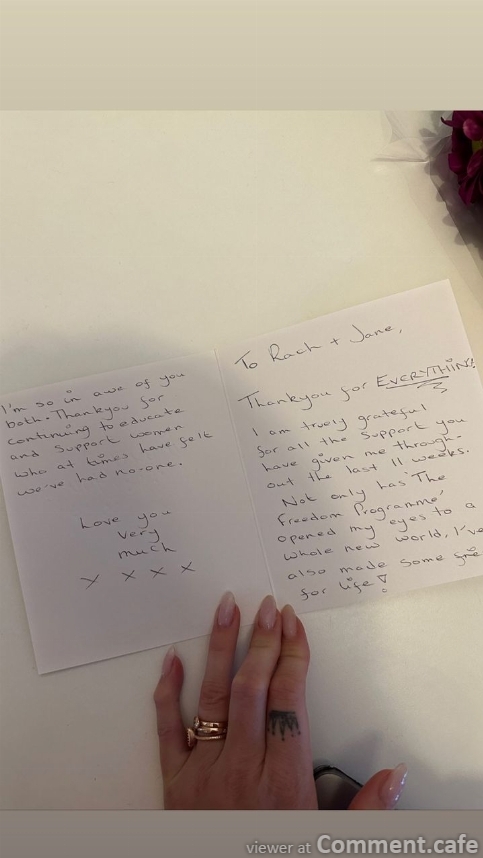 To Rach + Jane,
Thankyou for EVERYTHING
I am truely grateful
for all the support you
have given me through-
out the last 11 weeks.
Not only has 'The
Freedom Programme'
opened my eyes to a
whole new world, I've
also made some
for life!
I'm so in awe of you
both. Thankyou for
continuing to educate
and support women
who at times have felt
we've had no-one.
Love you
very
much
x x x x
viewer at Comment.cafe